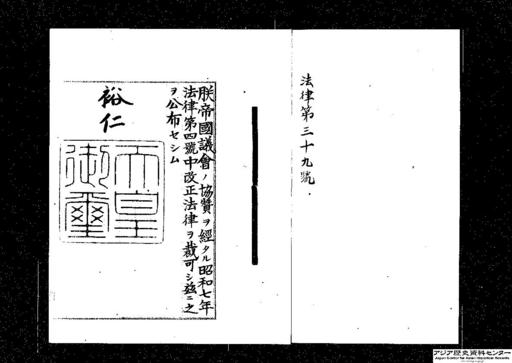 法律第三十九號
朕帝國議會ノ協贊ヲ經タル昭和七年
法律第四號中改正法律ヲ裁可シ茲ニ之
ヲ公布セシム
裕仁
天皇
御璽
アジア歴史資料センター
Japan Center for Asian Historical Records